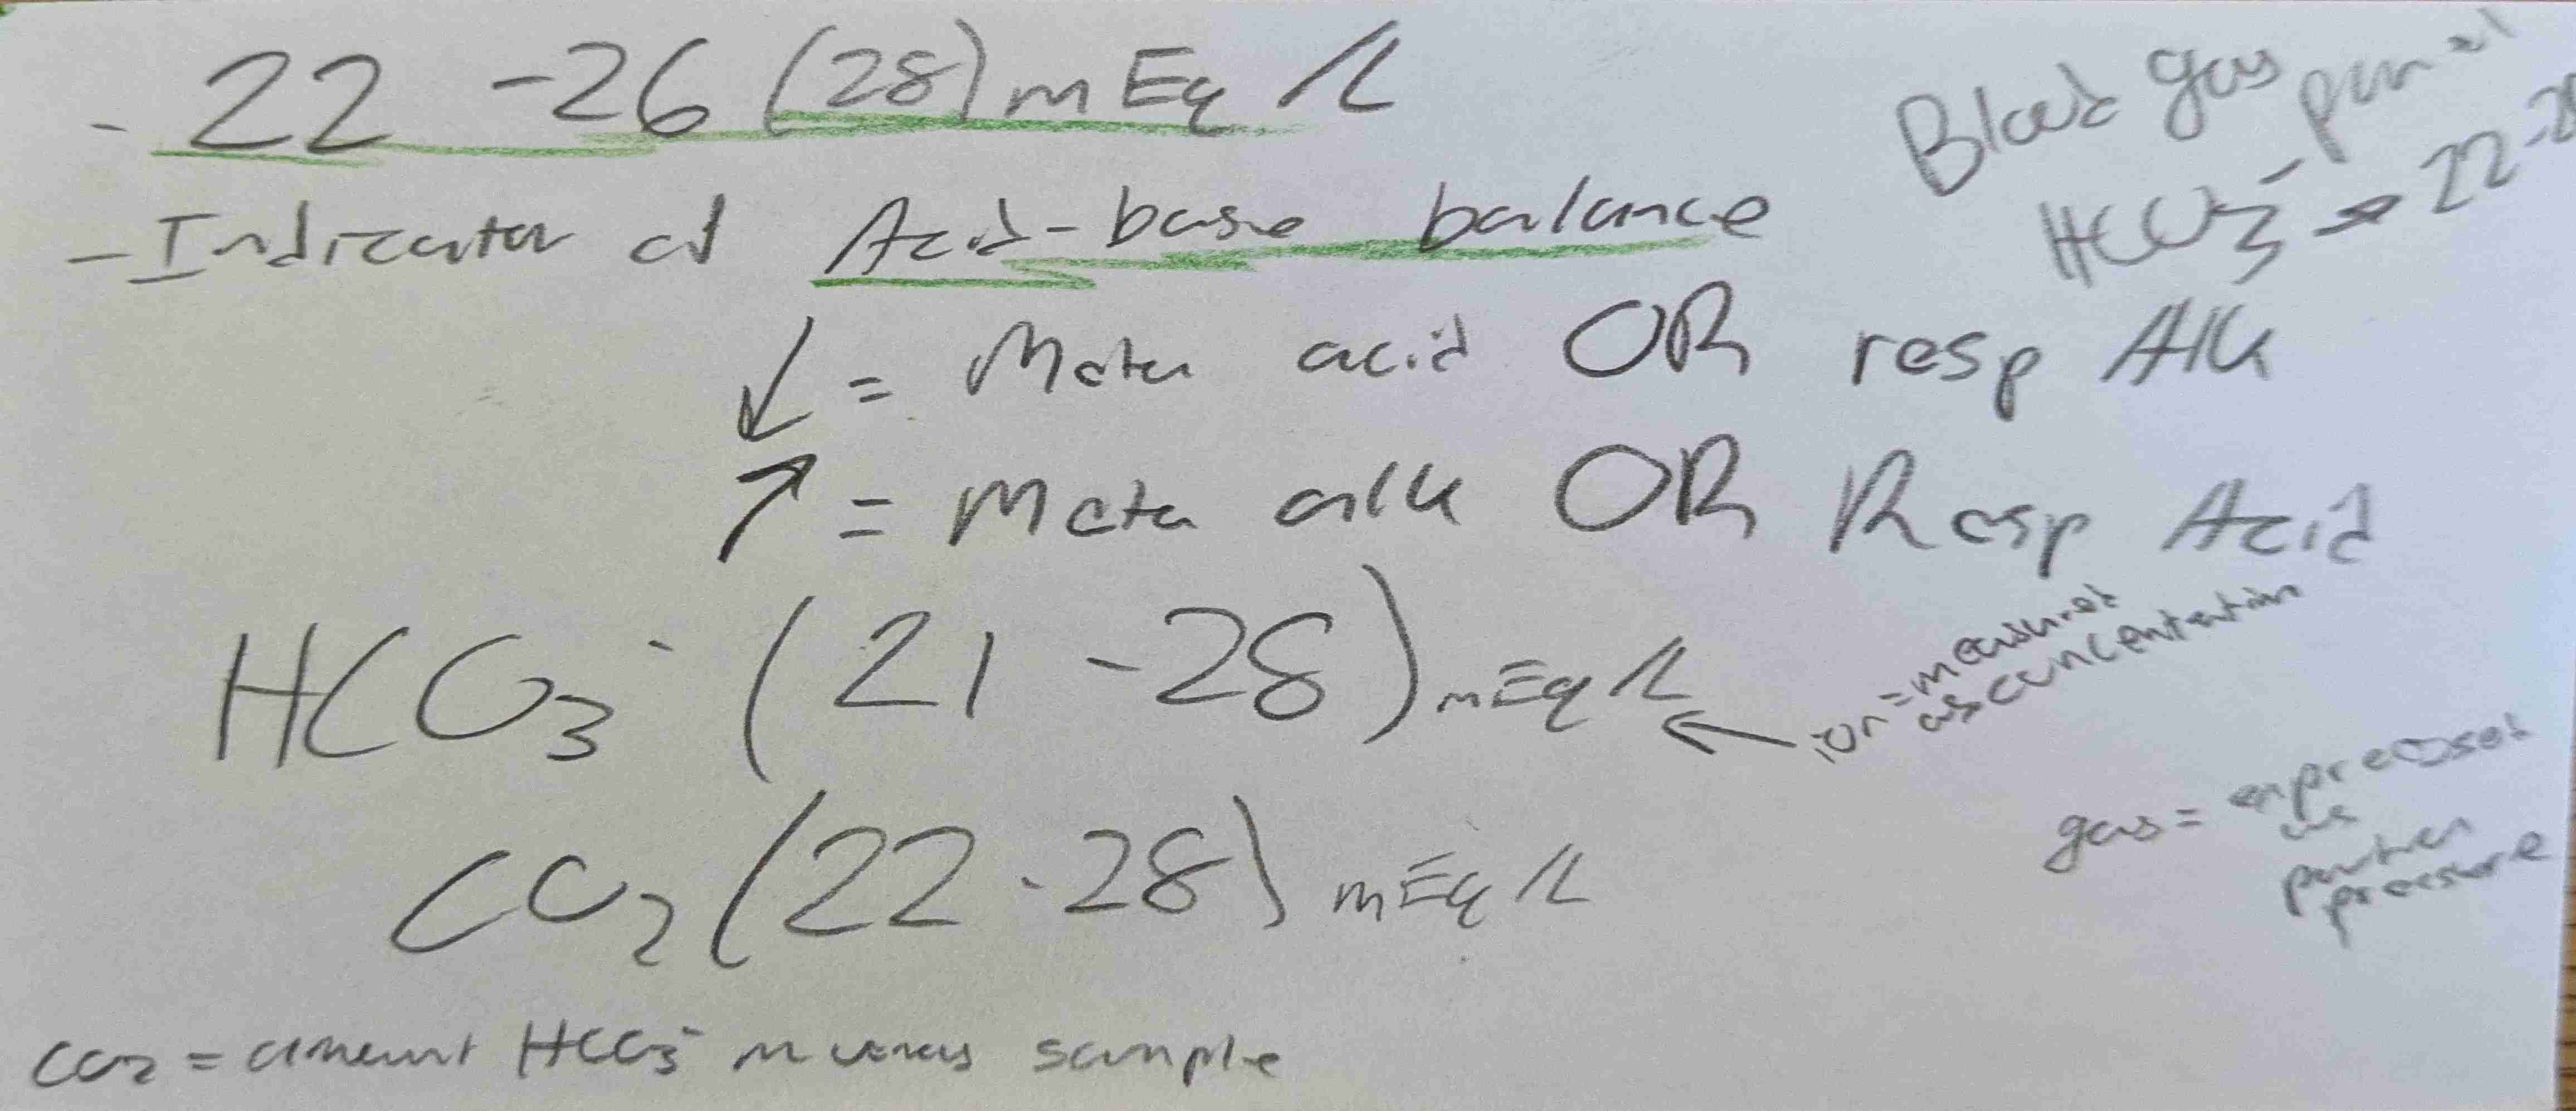 - 22 - 26 (28) mEq/L
- Indicator of Acid-base balance
Blood gas panel
HCO3⁻ → 22-28
↓ = Meta acid OR resp Alk
↑ = Meta alk OR Resp Acid
HCO3⁻ (21 - 28) mEq/L
← ion = measured
as concentration
CO2 (22 - 28) mEq/L
gas = expressed
as
partial
pressure
CO2 = amount HCO3⁻ in venous sample